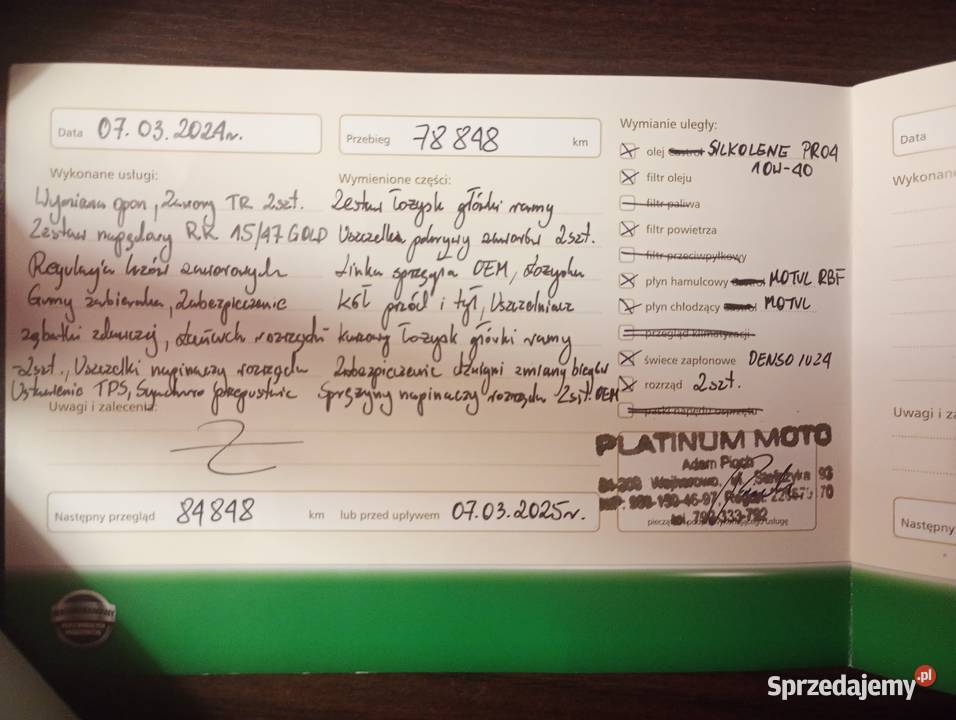 Data 07.03.2024r.
Przebieg 78 848 km
Wykonane usługi:
Wymiana opon, Zawory TR 2szt.
Zestaw napędowy RK 15/47 GOLD
Regulacja luzów zaworowych
Gumy zabieraka, Zabezpieczenie
zębatki zdawczej, rozrządu
2szt., Uszczelki napinaczy rozrządu
Ustawienie TPS, Synchro przepustnic
Uwagi i zalecenia:
Wymienione części:
Zestaw łożysk główki ramy
Uszczelka pokrywy zaworów 2szt.
Linka sprzęgła OEM, Łożyska
kół przód i tył, Uszczelniacz
kurzowy łożysk główki ramy
Zabezpieczenie dźwigni zmiany biegów
Sprężyny napinaczy rozrządu 2szt. OEM
Wymianie uległy:
olej Castrol SILKOLENE PRO4
10W-40
filtr oleju
filtr paliwa
filtr powietrza
filtr przeciwpyłkowy
płyn hamulcowy Castrol MOTUL RBF
płyn chłodzący Castrol MOTUL
przegląd klimatyzacji
świece zapłonowe DENSO IU24
rozrząd 2szt.
paski napędu osprzętu
PLATINUM MOTO
Adam Pioch
Wejherowo,
tel. 792-333-792
Następny przegląd 84848 km lub przed upływem 07.03.2025r.
Data
Wykonane
Uwagi i za
Następny
Sprzedajemy.pl